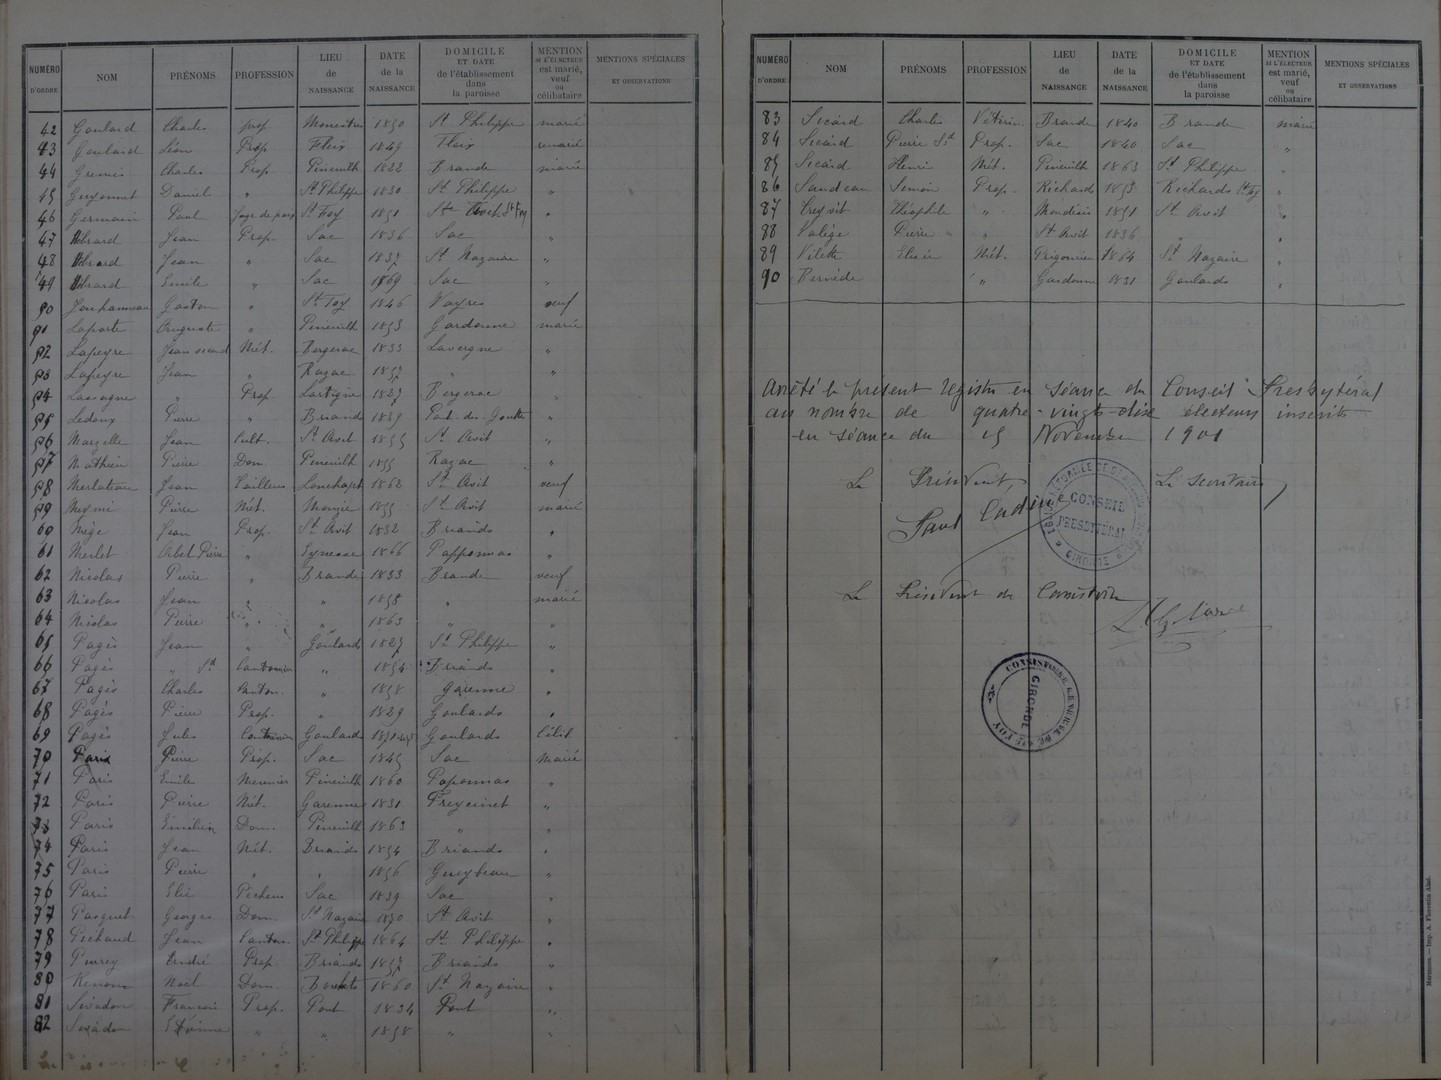 NUMÉRO D'ORDRE NOM PRÉNOMS PROFESSION LIEU de NAISSANCE DATE de la NAISSANCE DOMICILE ET DATE de l'établissement dans la paroisse MENTION si L'ÉLECTEUR est marié, veuf ou célibataire MENTIONS SPÉCIALES ET OBSERVATIONS
42 Goulard Charles prop. 1850 St Philippe marié
43 Goulard Léon Prop. Fleix 1849 Fleix marié
44 Charles Prop. Pineuilh 1822 Briands marié
45 Guyonnet Daniel " St Philippe 1830 St Philippe "
46 Germain Paul Juge de paix Ste Foy 1851 "
47 Jean Prop. Sac 1836 Sac "
48 Jean " Sac 1837 St Nazaire "
49 Emile " Sac 1869 Sac "
50 Gaston " Ste Foy 1846 Vayres veuf
51 Laporte Auguste " Pineuilh 1853 Gardonne marié
52 Lapeyre Jean Mét. Bergerac 1833 Lavergne "
53 Lapeyre Jean " Razac 1857 " "
54 Lassagne " Prop. Lartigue 1827 Bergerac "
55 Ledoux Pierre " Briands 1859 "
56 Jean Cult. St Avit 1855 St Avit "
57 Mathieu Pierre Dom. Pineuilh 1855 Razac "
58 Merlateau Jean Tailleur 1862 St Avit veuf
59 Meymi Pierre Mét. 1855 St Avit marié
60 Mège Jean Prop. St Avit 1832 Briands "
61 Merlet Abel Pierre " Eynesse 1866 Papponnas "
62 Nicolas Pierre " Briands 1833 Briands veuf
63 Nicolas Jean " " 1858 " marié
64 Nicolas Pierre " " 1863 " "
65 Pagès Jean " Goulard 1827 St Philippe "
66 Pagès " Sd Cantonnier " 1854 Briands "
67 Pagès Charles Canton. " 1858 Garenne "
68 Pagès Pierre Prop. " 1829 Goulards "
69 Pagès Jules Cantonnier Goulards Goulards Célib
70 Paris Pierre Prop. Sac 1845 Sac marié
71 Paris Emile Meunier Pineuilh 1860 Paponnas "
72 Paris Pierre Mét. Garenne 1831 Freycinet "
73 Paris Émilien Dom. Pineuilh 1863 " "
74 Paris Jean Mét. Briands 1854 Briands "
75 Paris Pierre " " 1856 Gueybeau "
76 Paris Elie Pêcheur Sac 1839 Sac "
77 Pasquet Georges Dom. St Nazaire 1870 St Avit "
78 Péchaud Jean Canton. St Philippe 1864 St Philippe "
79 André Prop. Briands 1857 Briands "
80 Noël Dom. 1860 St Nazaire "
81 François Prop. Pont 1834 Pont "
82 Etienne " " 1858 " "
NUMÉRO D'ORDRE NOM PRÉNOMS PROFESSION LIEU de NAISSANCE DATE de la NAISSANCE DOMICILE ET DATE de l'établissement dans la paroisse MENTION si L'ÉLECTEUR est marié, veuf ou célibataire MENTIONS SPÉCIALES ET OBSERVATIONS
83 Sicard Charles Vétérin. Briands 1840 Briands marié
84 Sicard Pierre Sd Prop. Sac 1840 Sac "
85 Sicard Henri Mét. Pineuilh 1863 St Philippe "
86 Simon Prop. Richards 1853 Richards Ste Foy "
87 Théophile " 1851 St Avit "
88 Valège Pierre " St Avit 1836 " "
89 Elisée Mét. 1864 St Nazaire "
90 " Gardonne 1831 Goulards "
Arrêté le présent registre en séance du Conseil Presbytéral
au nombre de quatre-vingt-dix électeurs inscrits
en séance du 15 Novembre 1901
Le Président, Le Secrétaire,
Paul
CONSEIL PRESBYTÉRAL
GIRONDE
Le Président du Consistoire
CONSISTOIRE GÉNÉRAL DE STE FOY
GIRONDE
Marmande. — Imp. A. Florentin Aîné.